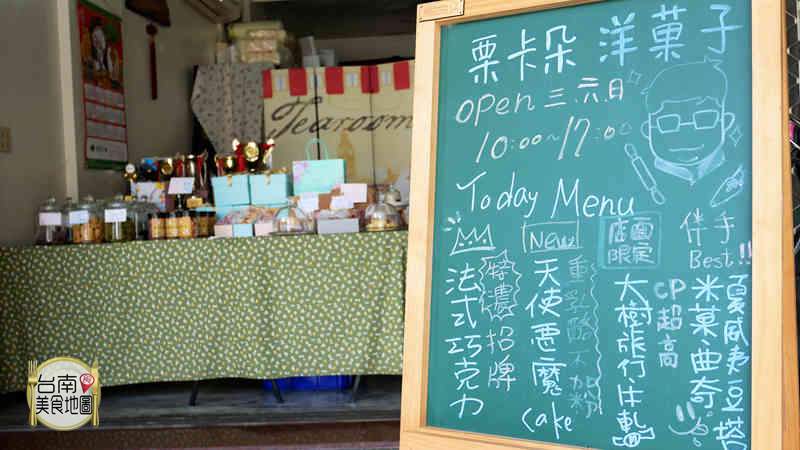 栗卡朵 洋菓子
open 三.六.日
10:00~17:00
Today Menu
法式巧克力
特濃招牌
New
天使惡魔
cake
重乳酪不加粉
店面
限定
大樹旅行.牛軋
伴手
Best!!
CP超高
米菓.曲奇
夏威夷豆塔
Tearoom
台南
美食地圖